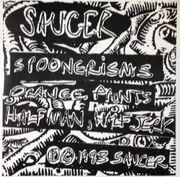 SAUCER
SPOONERISMS
ORANGE PAINTS
HALF MAN, HALF JERK
©℗ 1993 SAUCER